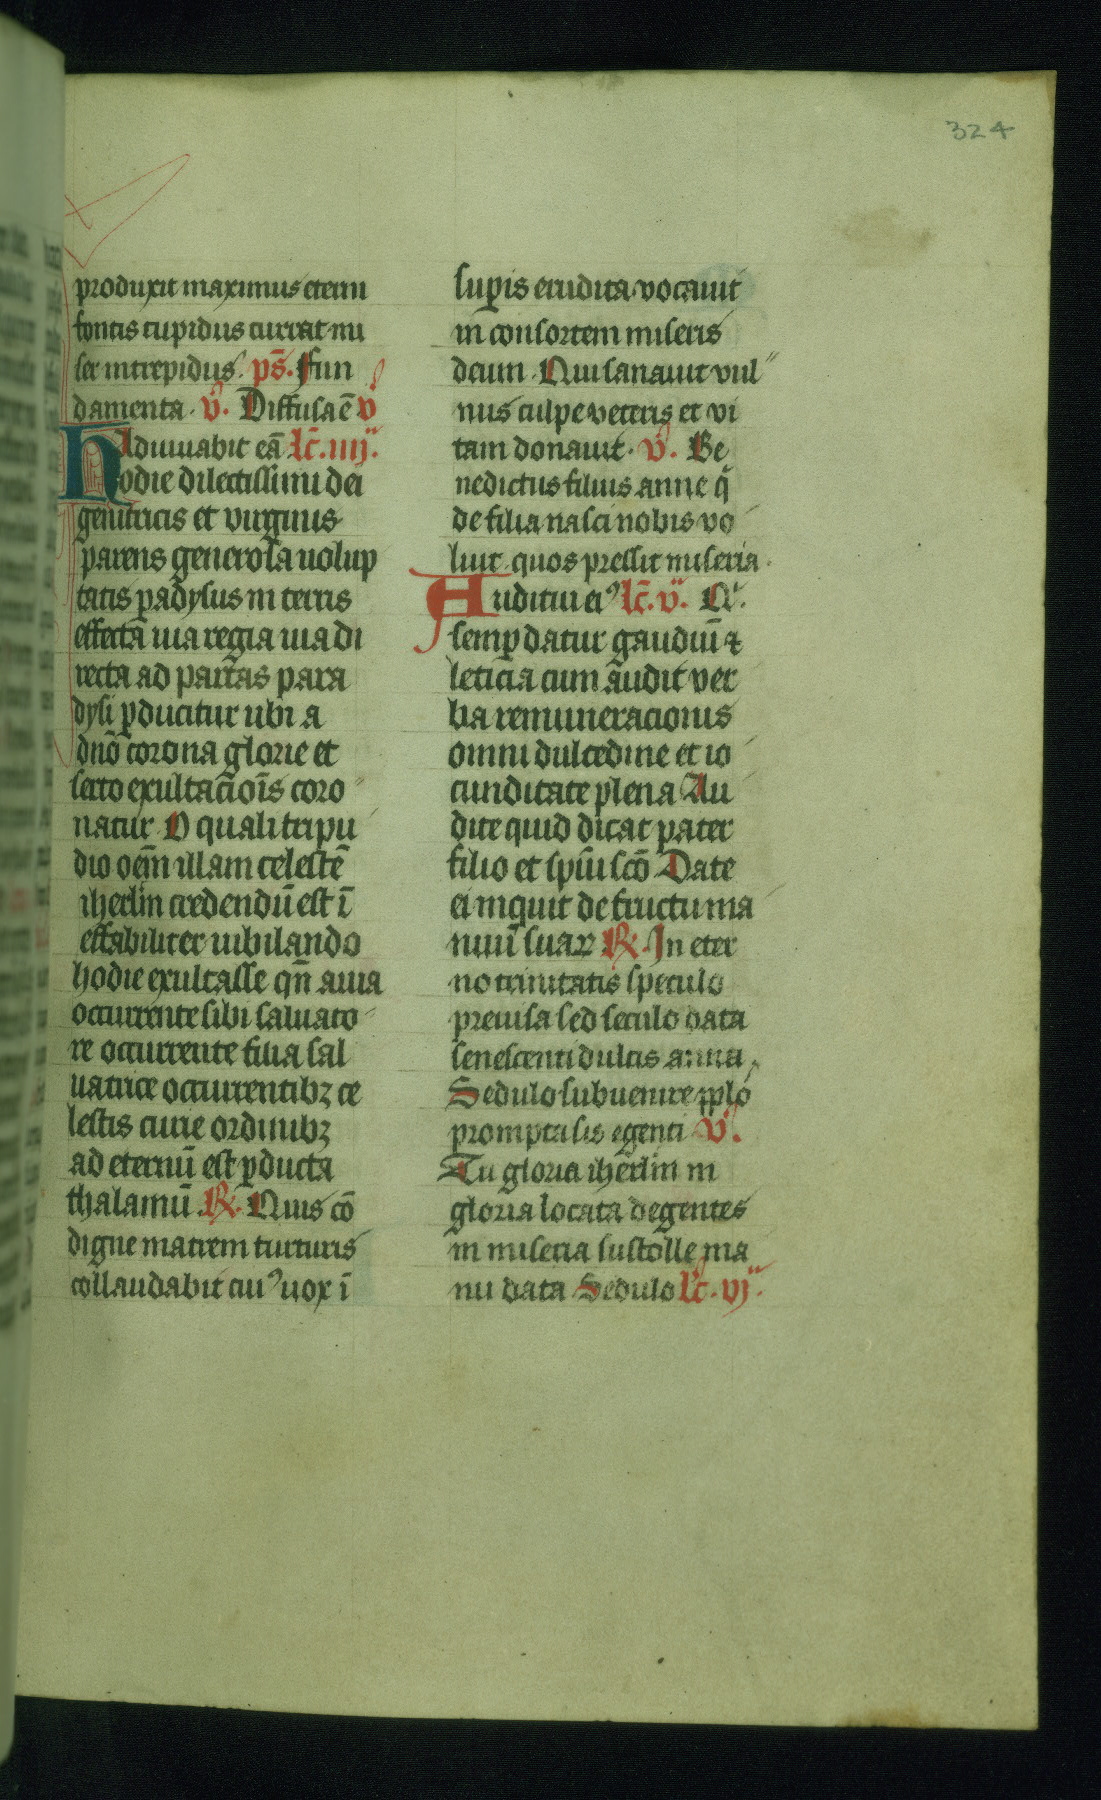 324
produxit maximus eterni
fontis cupidus currat mi
ser intrepidus. ps̄. Fun
damenta. v̄. Diffusa ē v̄
Adiuuabit eā lc̄. iiij.
Hodie dilectissimi dei
genitricis et virginis
parens generosa uolup
tatis padysus in terris
effecta uia regia uia di
recta ad patrias para
dysi ꝑducitur ubi a
dnō corona glorie et
serto exultac̄ois coro
natur O quali tripu
dio oēm illam celestē
iherlm̄ credendū est ī
effabiliter iubilando
hodie exultasse qn̄ auia
occurrente sibi saluato
re occurrente filia sal
uatrice occurrentibꝫ ce
lestis curie ordinibꝫ
ad eternū est ꝑducta
thalamū ℟. Quis cō
digne matrem turturis
collaudabit cuiꝰ uox ī
suꝑis erudita vocauit
in consortem miseris
deum. Qui sanauit vul
nus culpe veteris et vi
tam donauit. v̄. Be
nedictus filius anne q̄
de filia nasci nobis vo
luit quos pressit miseria.
Auditui eiꝰ lc̄. v. A.
semꝑ datur gaudiū ⁊
leticia cum audit ver
ba remuneracionis
omni dulcedine et io
cunditate plena Au
dite quid dicat pater
filio et spūi scō Date
ei inquit de fructu ma
nuū suaꝝ ℟. In eter
no trinitatis speculo
preuisa sed seculo data
senescenti dulcis anna
Sedulo subuenire pplo
prompta sis egenti v̄.
Tu gloria iherlm̄ in
gloria locata degentes
in miseria sustolle ma
nu data Sedulo lc̄. vj.